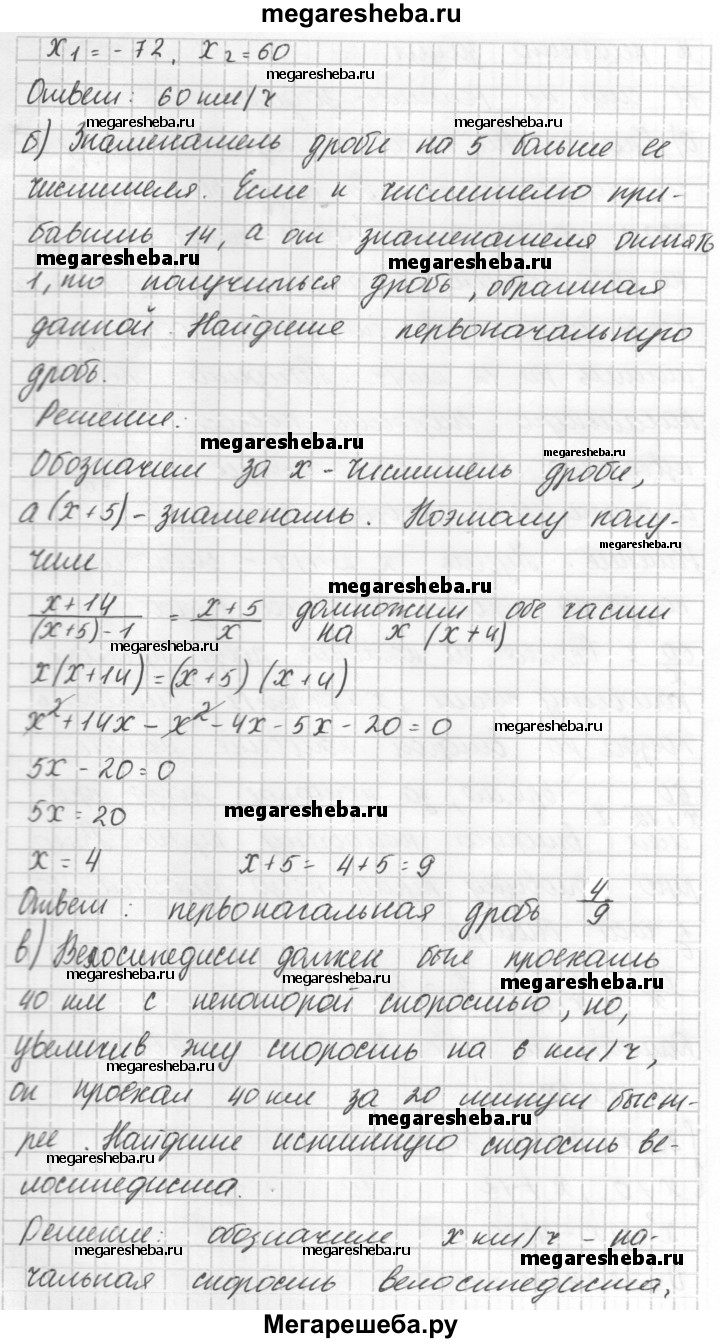 megaresheba.ru
x₁ = - 72, x₂ = 60
megaresheba.ru
Ответ: 60 км/ч
megaresheba.ru megaresheba.ru
б) Знаменатель дроби на 5 больше ее
числителя. Если к числителю при-
бавить 14, а от знаменателя отнять
megaresheba.ru megaresheba.ru
1, то получиться дробь, обратная
данной. Найдите первоначальную
дробь.
Решение:
megaresheba.ru megaresheba.ru
Обозначим за x - числитель дроби,
а (x+5) - знаменать. Поэтому полу-
megaresheba.ru
чим
megaresheba.ru
(x+14)/((x+5)-1) = (x+5)/x домножим обе части
на x (x+4)
megaresheba.ru
x(x+14) = (x+5) (x+4)
x² + 14x - x² - 4x - 5x - 20 = 0 megaresheba.ru
5x - 20 = 0
5x = 20 megaresheba.ru
x = 4 x+5 = 4+5 = 9
Ответ: первоначальная дробь 4/9
в) Велосипедист должен был проехать
megaresheba.ru megaresheba.ru megaresheba.ru
40 км с некоторой скоростью, но,
увеличив эту скорость на 6 км/ч,
megaresheba.ru
он проехал 40 км за 20 минут быст-
megaresheba.ru
рее. Найдите истинную скорость ве-
megaresheba.ru
лосипедиста.
Решение: обозначим x км/ч - на-
megaresheba.ru megaresheba.ru megaresheba.ru
чальная скорость велосипедиста,
Мегарешеба.ру